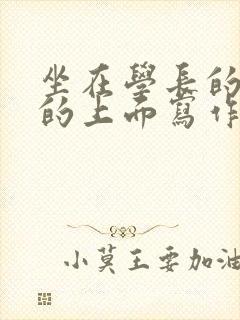 坐在學長的
的上而寫作
小莫王要加油